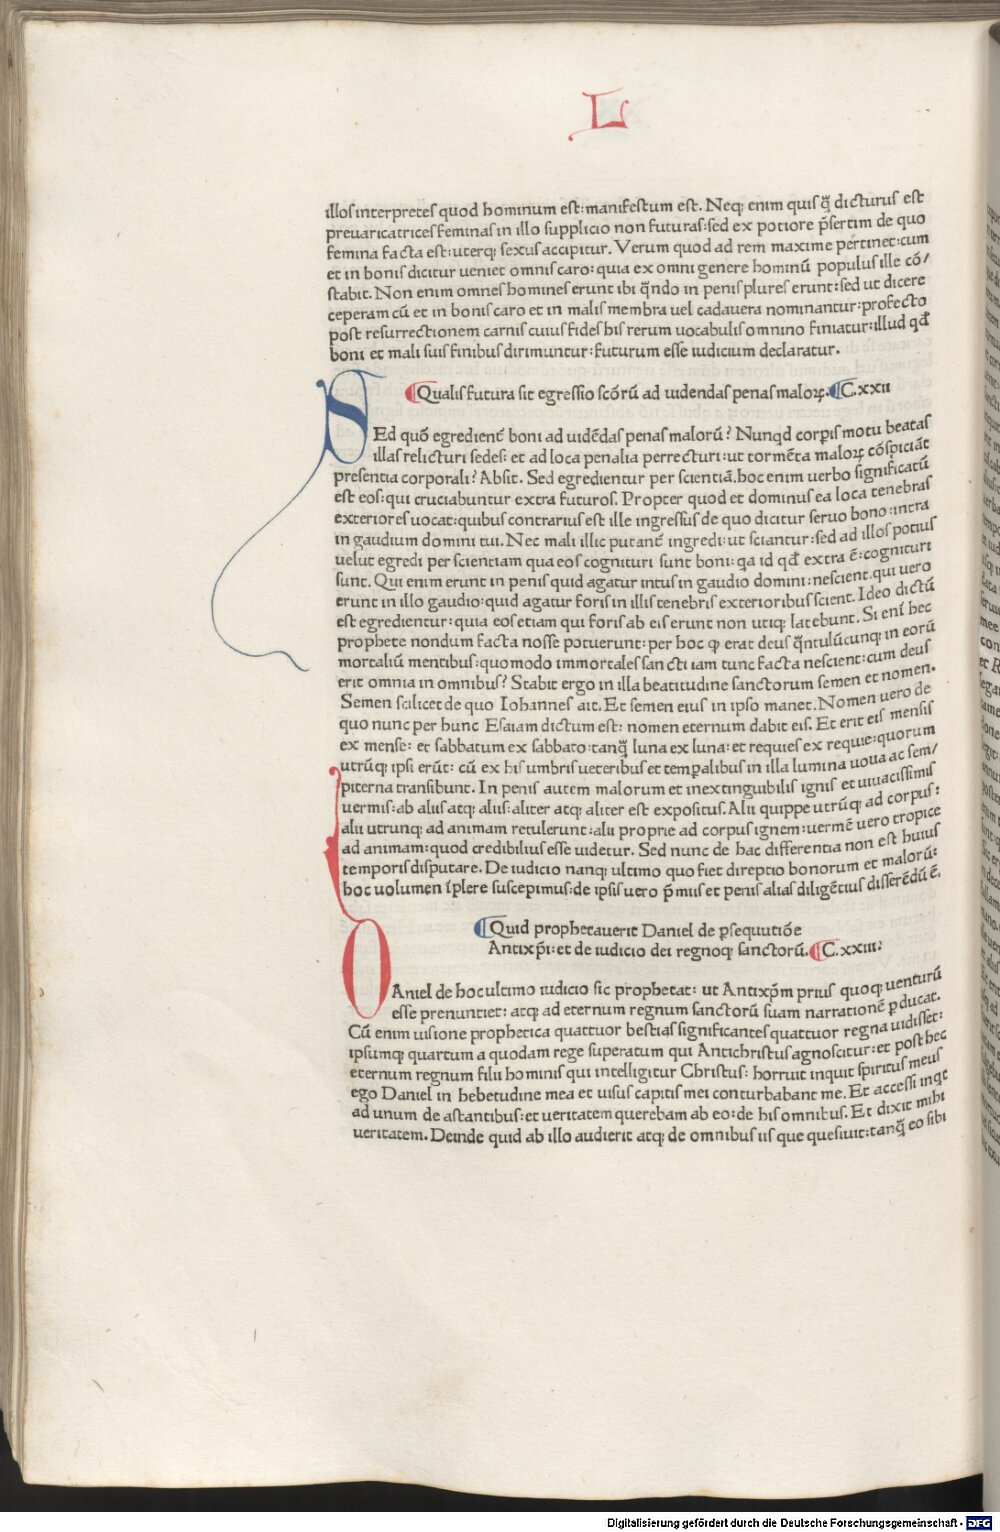 L
illos interpretes quod hominum est: manifestum est. Neq; enim quisq̃ dicturus est
preuaricatrices feminas in illo supplicio non futuras: sed ex potiore p̃sertim de quo
femina facta est: uterq; sexus accipitur. Verum quod ad rem maxime pertinet: cum
et in bonis dicitur ueniet omnis caro: quia ex omni genere hominũ populus ille cõ/
stabit. Non enim omnes homines erunt ibi q̃ndo in penis plures erunt: sed ut dicere
ceperam cũ et in bonis caro et in malis membra uel cadauera nominantur: profecto
post resurrectionem carnis cuius fides his rerum uocabulis omnino finiatur: illud qđ
boni et mali suis finibus dirimuntur: futurum esse iudicium declaratur.
¶Qualis futura sit egressio scõrũ ad uidendas penas maloꝝ. ¶C.xxii
SEd quõ egredient̃ boni ad uidẽdas penas malorũ? Nunqd corpis motu beatas
illas relicturi sedes: et ad loca penalia perrecturi: ut tormẽta maloꝝ cõspiciãt
presentia corporali? Absit. Sed egredientur per scientiã. hoc enim uerbo significatũ
est eos: qui cruciabuntur extra futuros. Propter quod et dominus ea loca tenebras
exteriores uocat: quibus contrarius est ille ingressus de quo dicitur seruo bono: intra
in gaudium domini tui. Nec mali illic putant̃ ingredi: ut sciantur: sed ad illos potius
uelut egredi per scientiam qua eos cognituri sunt boni: qa id qđ extra ẽ: cognituri
sunt. Qui enim erunt in penis quid agatur intus in gaudio domini: nescient. qui uero
erunt in illo gaudio: quid agatur foris in illis tenebris exterioribus scient. Ideo dictũ
est egredientur: quia eos etiam qui foris ab eis erunt non utiq; latebunt. Si enĩ hec
prophete nondum facta nosse potuerunt: per hoc ꝙ erat deus q̃ntulũcunq; in eorũ
mortaliũ mentibus: quomodo immortales sancti iam tunc facta nescient: cum deus
erit omnia in omnibus? Stabit ergo in illa beatitudine sanctorum semen et nomen.
Semen scilicet de quo Iohannes ait. Et semen eius in ipso manet. Nomen uero de
quo nunc per hunc Esaiam dictum est: nomen eternum dabit eis. Et erit eis mensis
ex mense: et sabbatum ex sabbato: tanq̃ luna ex luna: et requies ex requie: quorum
utrũq; ipsi erũt: cũ ex his umbris ueteribus et temꝑalibus in illa lumina uoua ac sem/
piterna transibunt. In penis autem malorum et inextinguibilis ignis et uiuacissimis
uermis: ab aliis atq; aliis: aliter atq; aliter est expositus. Alii quippe utrũq; ad corpus:
alii utrunq; ad animam retulerunt: alii proprie ad corpus ignem: uermẽ uero tropice
ad animam: quod credibilius esse uidetur. Sed nunc de hac differentia non est huius
temporis disputare. De iudicio nanq; ultimo quo fiet direptio bonorum et malorũ:
hoc uolumen ĩplere suscepimus: de ipsis uero p̃miis et penis alias diligẽtius disserẽdũ ẽ.
¶Quid prophetauerit Daniel de ꝑsequutiõe
Antixp̃i: et de iudicio dei regnoq; sanctorũ. ¶C.xxiii?
DAniel de hoc ultimo iudicio sic prophetat: ut Antixp̃m prius quoq; uenturũ
esse prenuntiet: atq; ad eternum regnum sanctorũ suam narrationẽ ꝑducat.
Cũ enim uisione prophetica quattuor bestias significantes quattuor regna uidisset:
ipsumq; quartum a quodam rege superatum qui Antichristus agnoscitur: et post hec
eternum regnum filii hominis qui intelligitur Christus: horruit inquit spiritus meus
ego Daniel in hebetudine mea et uisus capitis mei conturbabant me. Et accessi inqt
ad unum de astantibus: et ueritatem querebam ab eo: de his omnibus. Et dixit mihi
ueritatem. Deinde quid ab illo audierit atq; de omnibus iis que quesiuit: tanq̃ eo sibi
Digitalisierung gefördert durch die Deutsche Forschungsgemeinschaft - DFG